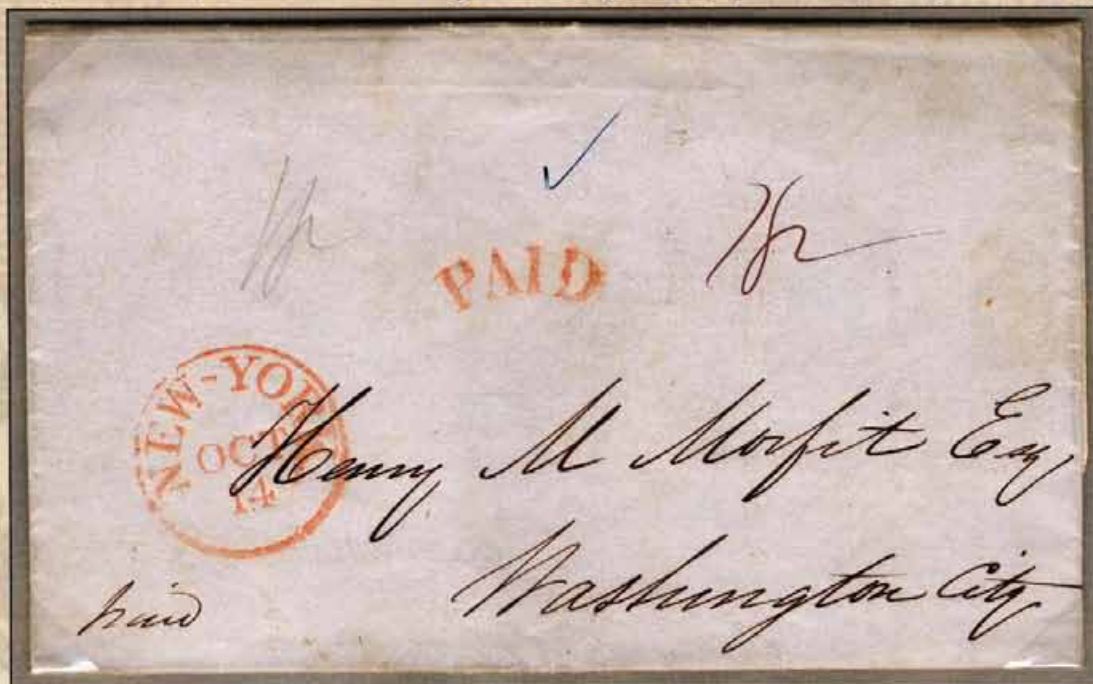 PAID
NEW-YORK
OCT
14
Henry M Morfit Esq
Washington City
paid